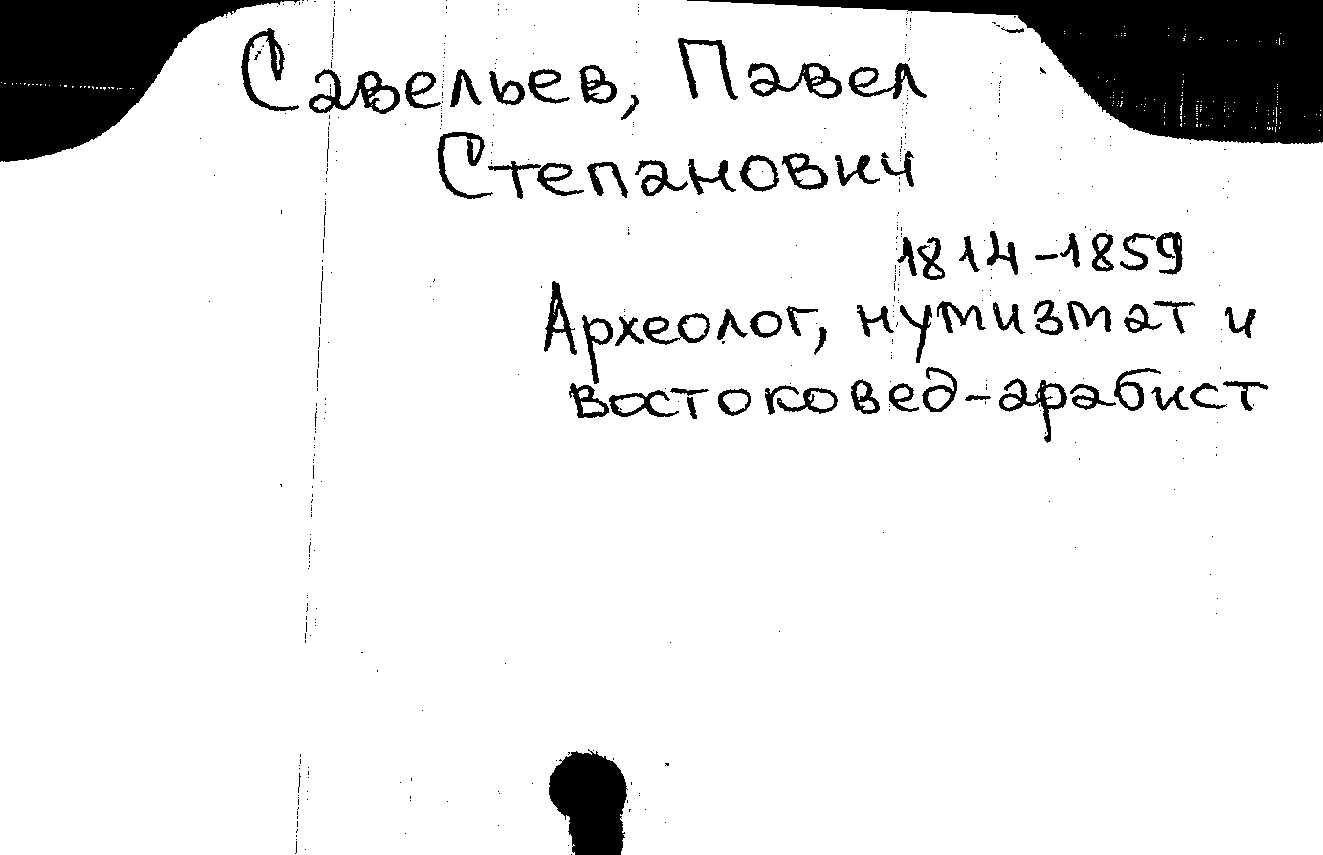 Савельев, Павел
Степанович
1814-1859
Археолог, нумизмат и
востоковед-арабист